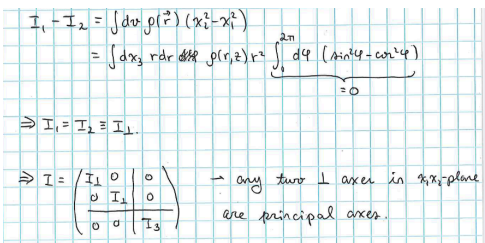 I₁ - I₂ = ∫dv ρ(r⃗) (x₂² - x₁²)
= ∫dx₃ rdr ρ(r,z) r² ∫₀^2π dφ (sin²φ - cos²φ)
= 0
⇒ I₁ = I₂ ≡ I⊥.
⇒ I = ( I⊥ 0 | 0 → any two ⊥ axes in x₁x₂-plane
0 I⊥ | 0
0 0 | I₃ ) are principal axes.